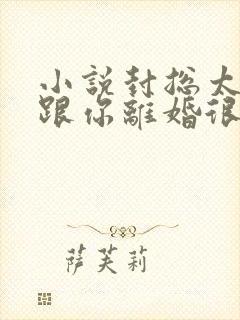 小説封總太
跟你離婚很
萨芙莉